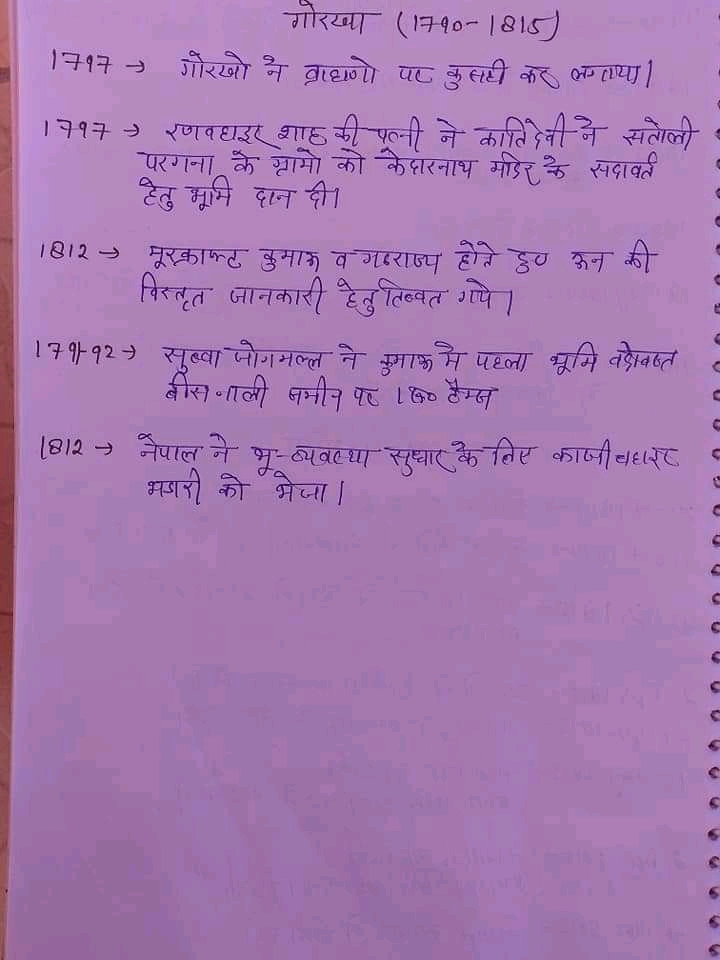 गोरखा (1790-1815)
1797 → गोरखो ने ब्राहाणो पर कुसही कर लगाया।
1797 → रणवहादुर शाह की पत्नी ने कातिदेवी ने सतोली
परगना के ग्रामो को केदारनाथ मंदिर के सदावर्त
हेतु भूमि दान दी।
1812 → मूरक्राफ्ट कुमाऊ व गढराज्य होते हुए ऊन की
विस्तृत जानकारी हेतु तिब्वत गये।
1791-92 → सुब्वा जोगमल्ल ने कुमाऊ मे पहला भूमि वंदोवस्त
बीस नाली जमीन पर 1 रू० टैक्स
1812 → नेपाल ने भू-व्यवस्था सुधार के लिए काजी बहादुर
भण्डारी को भेजा।